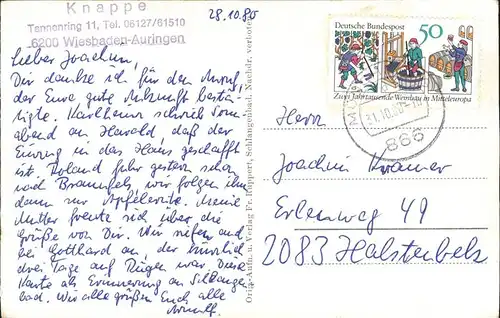 Knappe
Tennenring 11, Tel. 06127/61510
6200 Wiesbaden-Auringen
28.10.80
Lieber Joachim,
Dir danke ich für den Anruf,
der Eure gute Ankunft bestä-
tigte. Karlheinz schrieb Sonn-
abend an Harald, daß der
Einzug in das Haus geschafft
ist. Roland fuhr gestern schon
nach Braunfels, wir folgen ihm
dann zur Apfelernte. Meine
Mutter freute sich über die
Grüße von Dir. Wir riefen auch
bei Gotthard an, der kürzlich
drei Tage auf Rügen war. Diese
Karte als Erinnerung an Schlangen-
bad. Wir alle grüßen Euch alle
Orig.-Aufn. u. Verlag Fr. Ruppert, Schlangenbad. Nachdr. verboten
Deutsche Bundespost
50
Zwei Jahrtausende Weinbau in Mitteleuropa
31.10.80
866
Herrn
Joachim Kramer
Erlenweg 49
2083 Halstenbek